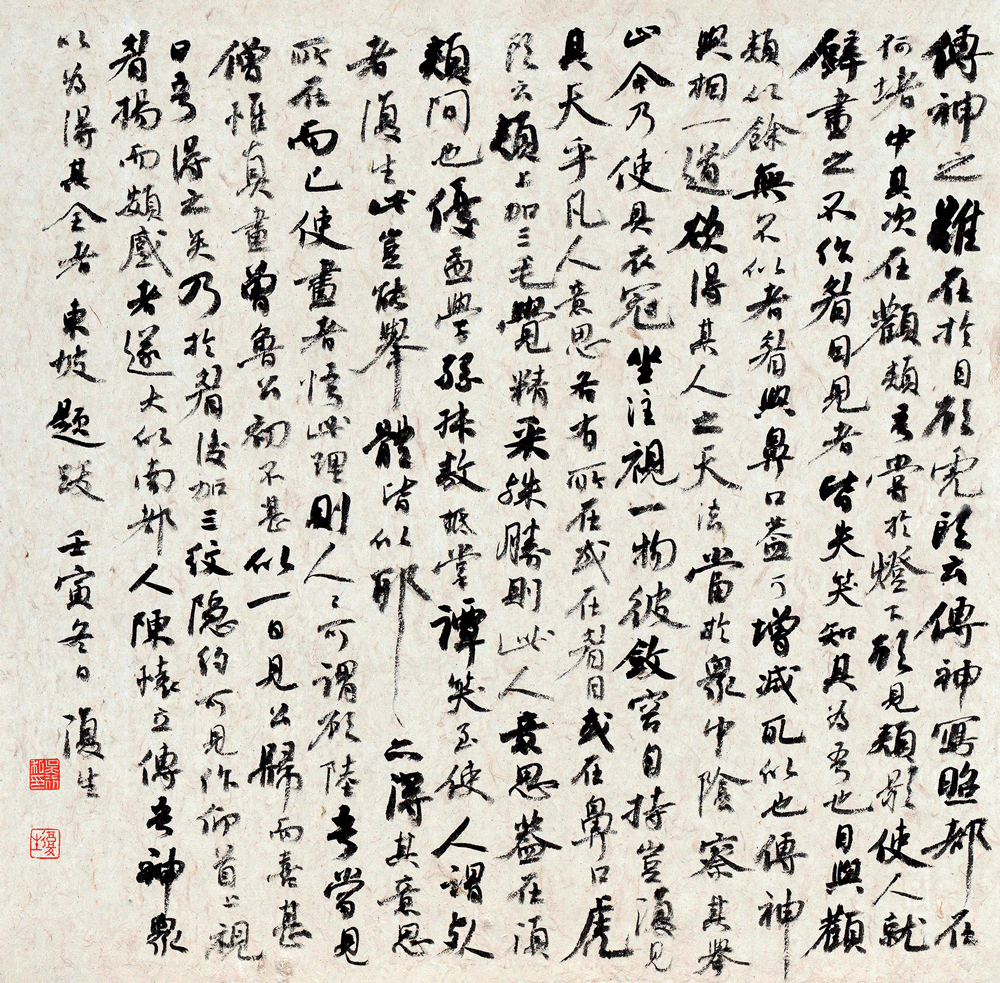 傳神之難在於目顧虎頭云傳神寫照都在
阿堵中其次在顴頰吾嘗於燈下顧見頰影使人就
壁畫之不作眉目見者皆失笑知其為吾也目與顴
頰似餘無不似者眉與鼻口蓋可增減取似也傳神
與相一道欲得其人之天法當於眾中陰察其舉
止今乃使具衣冠坐注視一物彼斂容自持豈復見
其天乎凡人意思各有所在或在眉目或在鼻口虎
頭云頰上加三毛覺精采殊勝則此人意思蓋在須
頰間也優孟學孫叔敖抵掌譚笑至使人謂死
者復生此豈能舉體皆似耶亦得其意思
所在而已使畫者悟此理則人々可謂顧陸吾嘗見
僧惟真畫曾魯公初不甚似一日見公歸而喜甚
曰吾得之矣乃於眉後加三紋隱約可見作仰首上視
眉揚而頞蹙者遂大似南都人陳懷立傳吾神眾
以為得其全者東坡題跋 壬寅冬日 復生
復生